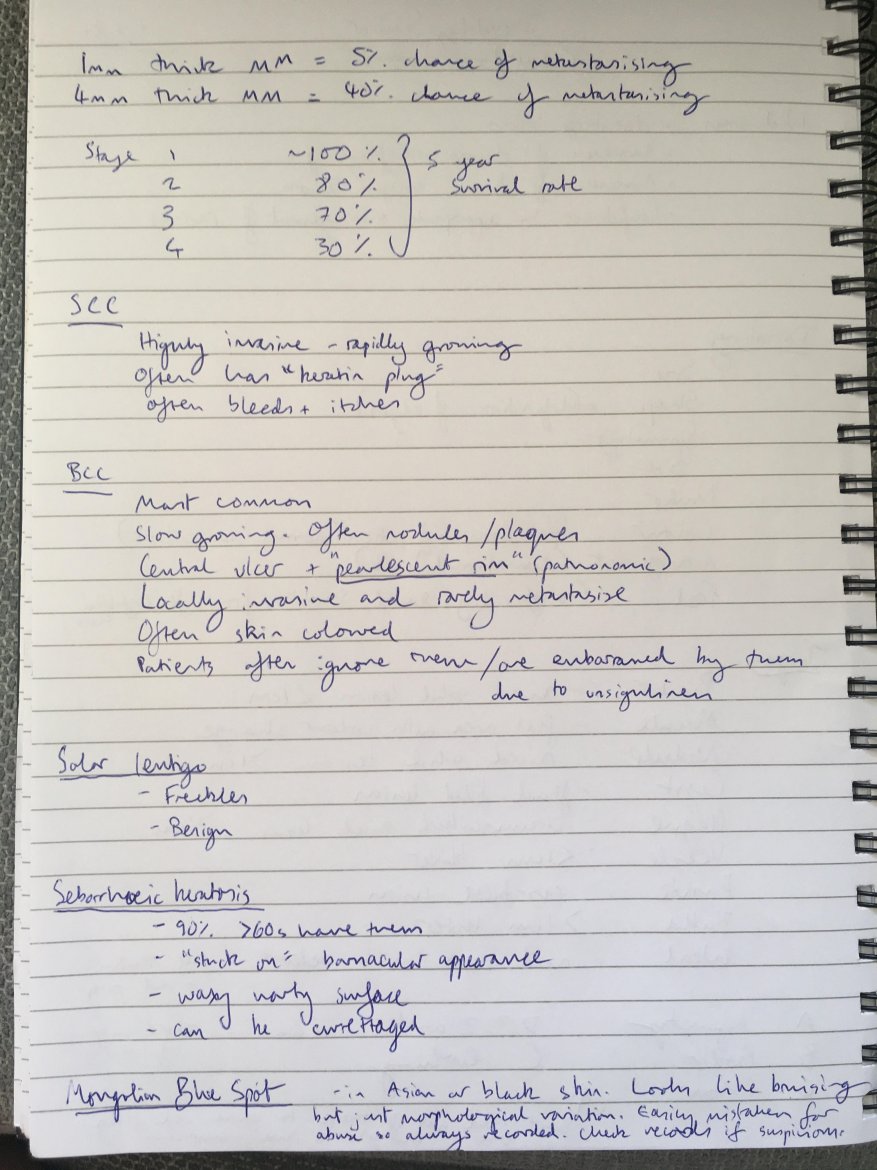 1mm thick MM = 5% chance of metastasising
4mm thick MM = 40% chance of metastasising
Stage 1 ~100% } 5 year
2 80% survival rate
3 70%
4 30%
SCC
Highly invasive - rapidly growing
Often has "keratin plug"
Often bleeds + itches
BCC
Most common
Slow growing. Often nodules/plaques
Central ulcer + "pearlescent rim" (patnonomic)
Locally invasive and rarely metastasise
Often skin coloured
Patients often ignore them/are embarrassed by them
due to unsightliness
Solar lentigo
- Freckles
- Benign
Seborrhoeic keratosis
- 90% >60s have them
- "stuck on" barnacular appearance
- waxy warty surface
- can be curettaged
Mongolian Blue Spot - in Asian or black skin. Looks like bruising
but just morphological variation. Easily mistaken for
abuse so always recorded. Check records if suspicious.